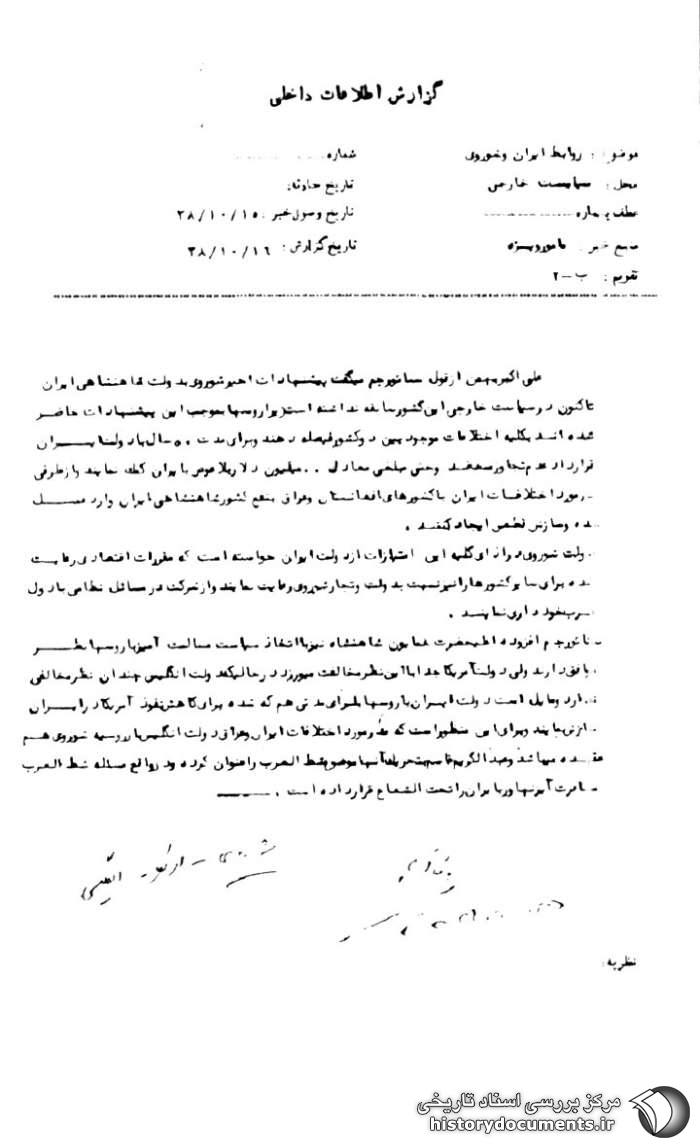 گزارش اطلاعات داخلی
موضوع : روابط ایران و شوروی
شماره
محل : سیاست خارجی
تاریخ حادثه:
عطف بشماره
تاریخ وصول خبر : ۳۸/۱۰/۱۵
منبع خبر : مامور ویژه
تاریخ گزارش : ۳۸/۱۰/۱۶
تقویم : ب-۲
علی اکبر از قول سناتور جم میگفت پیشنهادات اخیر شوروی بدولت شاهنشاهی ایران
تاکنون در سیاست خارجی این کشور سابقه نداشته است زیرا روسها بموجب این پیشنهادات حاضر
شده اند بکلیه اختلافات موجود بین دو کشور فیصله دهند و برای مدت ۵۰ سال با دولت ایران
قرارداد عدم تجاوز و حتی مبلغی معادل میلیون دلار بلاعوض بایران کمک نمایند و از طرفی
در مورد اختلافات ایران با کشورهای افغانستان و عراق بنفع کشور شاهنشاهی ایران وارد عمل
شده و سازش ایجاد کنند .
دولت شوروی در ازای کلیه این امتیازات از دولت ایران خواسته است که مقررات اقتصادی رعایت
شده برای سایر کشورها را نیز نسبت بدولت و تجار شوروی رعایت نمایند و از شرکت در مسائل نظامی با دول
غرب خودداری نمایند .
سناتور جم افزوده اعلیحضرت همایون شاهنشاه نیز با اتخاذ سیاست مسالمت آمیز با روسها
توافق دارند ولی دولت آمریکا جدا با این نظر مخالفت میورزد در حالیکه دولت انگلیس چندان نظر مخالفی
ندارد و مایل است دولت ایران با روسها برای مدتی هم که شده برای کاهش نفوذ آمریکا در ایران
سازش نمایند و برای این منظور است که در مورد اختلافات ایران و عراق دولت انگلیس با روسیه شوروی هم
عقیده میباشد و عبدالکریم قاسم بتحریک آنها موضوع شط العرب را عنوان کرده و در واقع مسئله شط العرب
مسافرت آیزنهاور بایران را تحت الشعاع قرار داده است .
نظریه:
مرکز بررسی اسناد تاریخی
historydocuments.ir